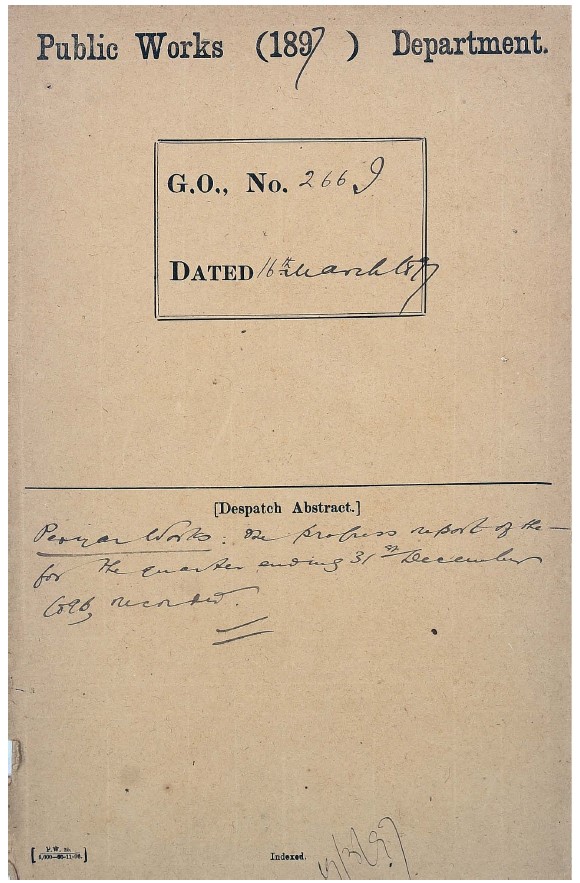 Public Works (1897) Department.
G.O., No. 266 I
DATED 16th March 1897
[Despatch Abstract.]
Periyar Works. The progress report of the —
for the quarter ending 31st December
1896, recorded.
P.W. 20.
Indexed.